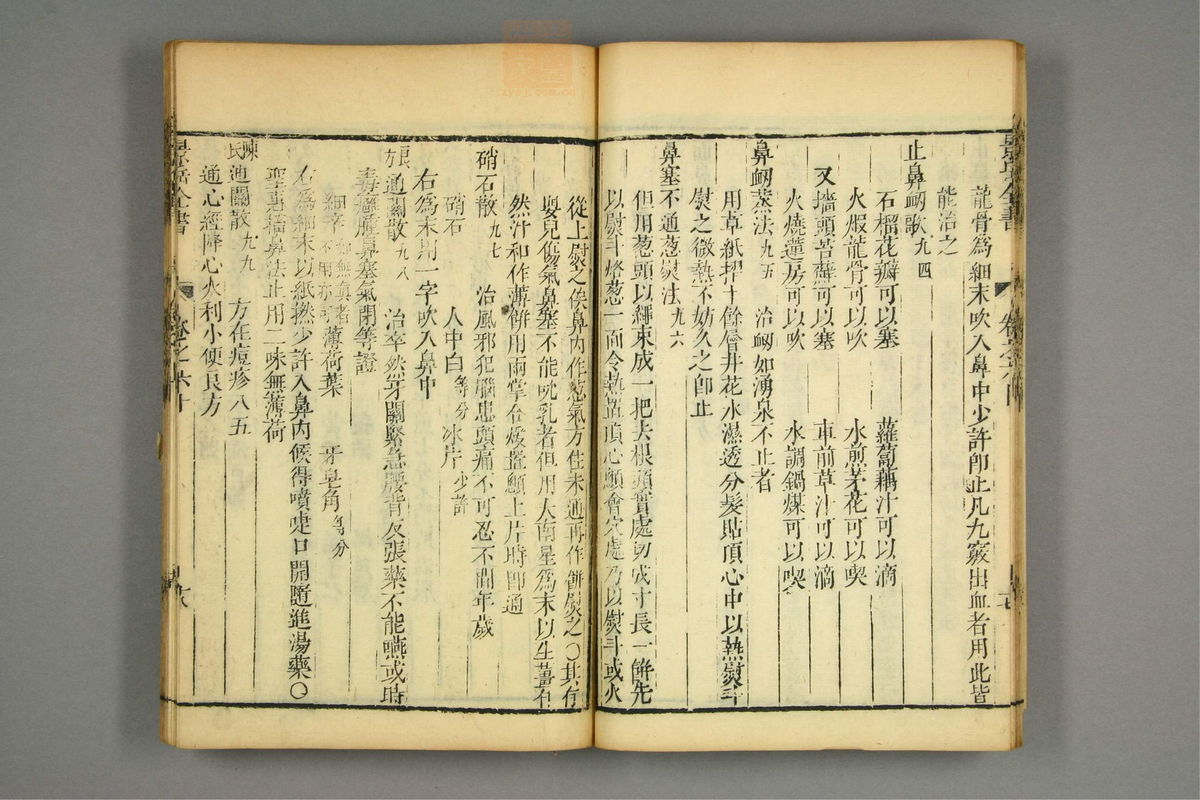 景岳全書
龍骨爲細末吹入鼻中少許卽止凡九竅出血者用此皆
能治之
止鼻衂歌九四
石榴花瓣可以塞 蘿蔔藕汁可以滴
火煅龍骨可以吹 水煎茅花可以喫
又墻頭苔蘚可以塞 車前草汁可以滴
火燒蓮房可以吹 水調鍋煤可以喫
鼻衂蒸法九五 治衂如湧泉不止者
用草紙摺十餘層井花水濕透分髮貼頂心中以熱熨斗
熨之微熱不妨久之卽止
鼻塞不通葱熨法九六
但用葱頭以繩束成一把去根頭實處切成寸長一餅先
以熨斗烙葱一面令熱置頂心顖會穴處乃以熨斗或火
從上熨之俟鼻內作葱氣方住未通再作餅熨之〇其有
嬰兒傷氣鼻塞不能吮乳者但用大南星爲末以生薑自
然汁和作薄餅用兩掌合煖置顖上片時卽通
硝石散九七 治風邪犯腦患頭痛不可忍不問年歲
硝石 人中白等分 冰片少許
右爲末用一字吹入鼻中
良方通關散九八 治卒然牙關緊急腰背反張藥不能嚥或時
毒癰腫鼻塞氣閉等證
細辛如無眞者不用亦可 薄荷葉 牙皂角等分
右爲細末以紙撚少許入鼻內候得噴嚏口開隨進湯藥〇
聖惠搐鼻法止用二味無薄荷
陳氏通關散九九 方在痘疹八五
通心經降心火利小便良方
景岳全書 卷之六十 十八